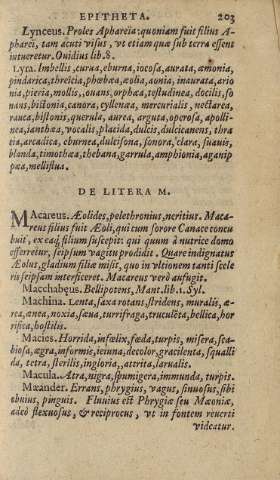 EPITHETA. 203
Lynceus. Proles Aphareia: quoniam fuit filius A-
pharei, tam acuti visus, vt etiam quæ sub terra essent
intueretur. Ouidius lib. 8.
Lyra. Imbellis, curua, eburna, iocosa, aurata, æmonia,
pindarica, threicia, phœbæa, æolia, aonia, inaurata, ario
nia, pieria, mollis, ouans, orphæa, testudinea, docilis, so
nans, bistonia, canora, cyllenæa, mercurialis, nectarea,
rauca, bistonis, querula, aurea, arguta, operosa, apolli-
nea, ianthæa, vocalis, placida, dulcis, dulcicanens, thra
tia, arcadica, eburnea, dulcisona, sonora, clara, suauis,
blanda, timothæa, thebana, garrula, amphionia, aganip
pæa, melliflua.
DE LITERA M.
Macareus. Æolides, pelethronius, neritius. Maca-
reus filius fuit Æoli, qui cum sorore Canace concu
buit, ex eaq; filium suscepit: qui quum à nutrice domo
efferretur, seipsum vagitu prodidit. Quare indignatus
Æolus, gladium filiæ misit, quo in vltionem tanti scele
ris seipsam interficeret. Macareus verò aufugit.
Macchabęus. Bellipotens, Mant. lib. 1. Syl.
Machina. Lenta, saxa rotans, stridens, muralis, æ-
rea, ænea, noxia, sæua, turrifraga, truculēta, bellica, hor
rifica, hostilis.
Macies. Horrida, infœlix, fœda, turpis, misera, sca-
biosa, ægra, informis, ieiuna, decolor, gracilenta, squalli
da, tetra, sterilis, ingloria, attrita, larualis.
Macula. Atra, nigra, spumigera, immunda, turpis.
Mæander. Errans, phrygius, vagus, sinuosus, sibi
obuius, pinguis. Fluuius est Phrygiæ seu Mæoniæ,
adeò flexuosus, & reciprocus, vt in fontem reuerti
videatur.